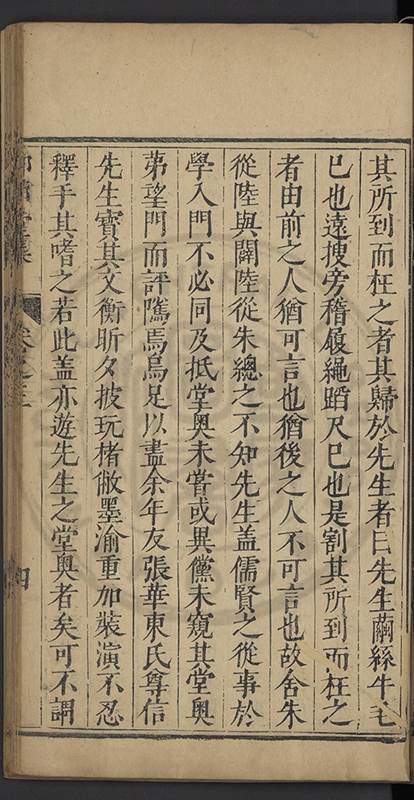 其所到而枉之者其歸於先生者曰先生繭絲牛毛
已也遠搜旁稽履繩蹈尺已也是割其所到而枉之
者由前之人猶可言也猶後之人不可言也故舍朱
從陸與闢陸從朱總之不知先生蓋儒賢之從事於
學入門不必同及抵堂奧未嘗或異儻未窺其堂奧
苐望門而評隲焉烏足以盡余年友張華東氏尊信
先生寳其文衡昕夕披玩楮敝墨渝重加裝演不忍
釋手其嗜之若此盖亦遊先生之堂奧者矣可不謂
卷之三
四